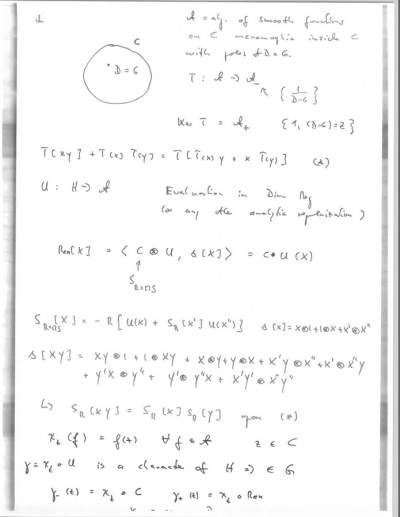 1
A = alg. of smooth functions
on C meromorphic inside C
with poles at D=6.
C
• D = 6
T : A → A_
R { 1/(D-6) }
Ker T = A₊ { 1, (D-6)=z }
T[xy] + T(x) T(y) = T[T(x) y + x T(y)] (*)
U : H → A Evaluation in Dim Reg
(or any other analytic regularization)
Ren[X] = < C ⊗ U, Δ[X] > = C * U (X)
↑
S_R=MS
S_R=MS [X] = - R [ U(X) + S_R[X'] U(X'') ] Δ[X] = X⊗1 + 1⊗X + X'⊗X''
Δ[XY] = XY⊗1 + 1⊗XY + X⊗Y + Y⊗X + X'Y⊗X'' + X'⊗X''Y
+ Y'X⊗Y'' + Y'⊗Y''X + X'Y'⊗X''Y''
↳ S_R[XY] = S_R[X] S_R[Y] upon (*)
χ_t(f) = f(t) ∀ f ∈ A z ∈ C
γ = χ_t ∘ U is a character of H ⇒ ∈ G
γ_(t) = χ_t ∘ C γ₊(t) = χ_t ∘ Ren